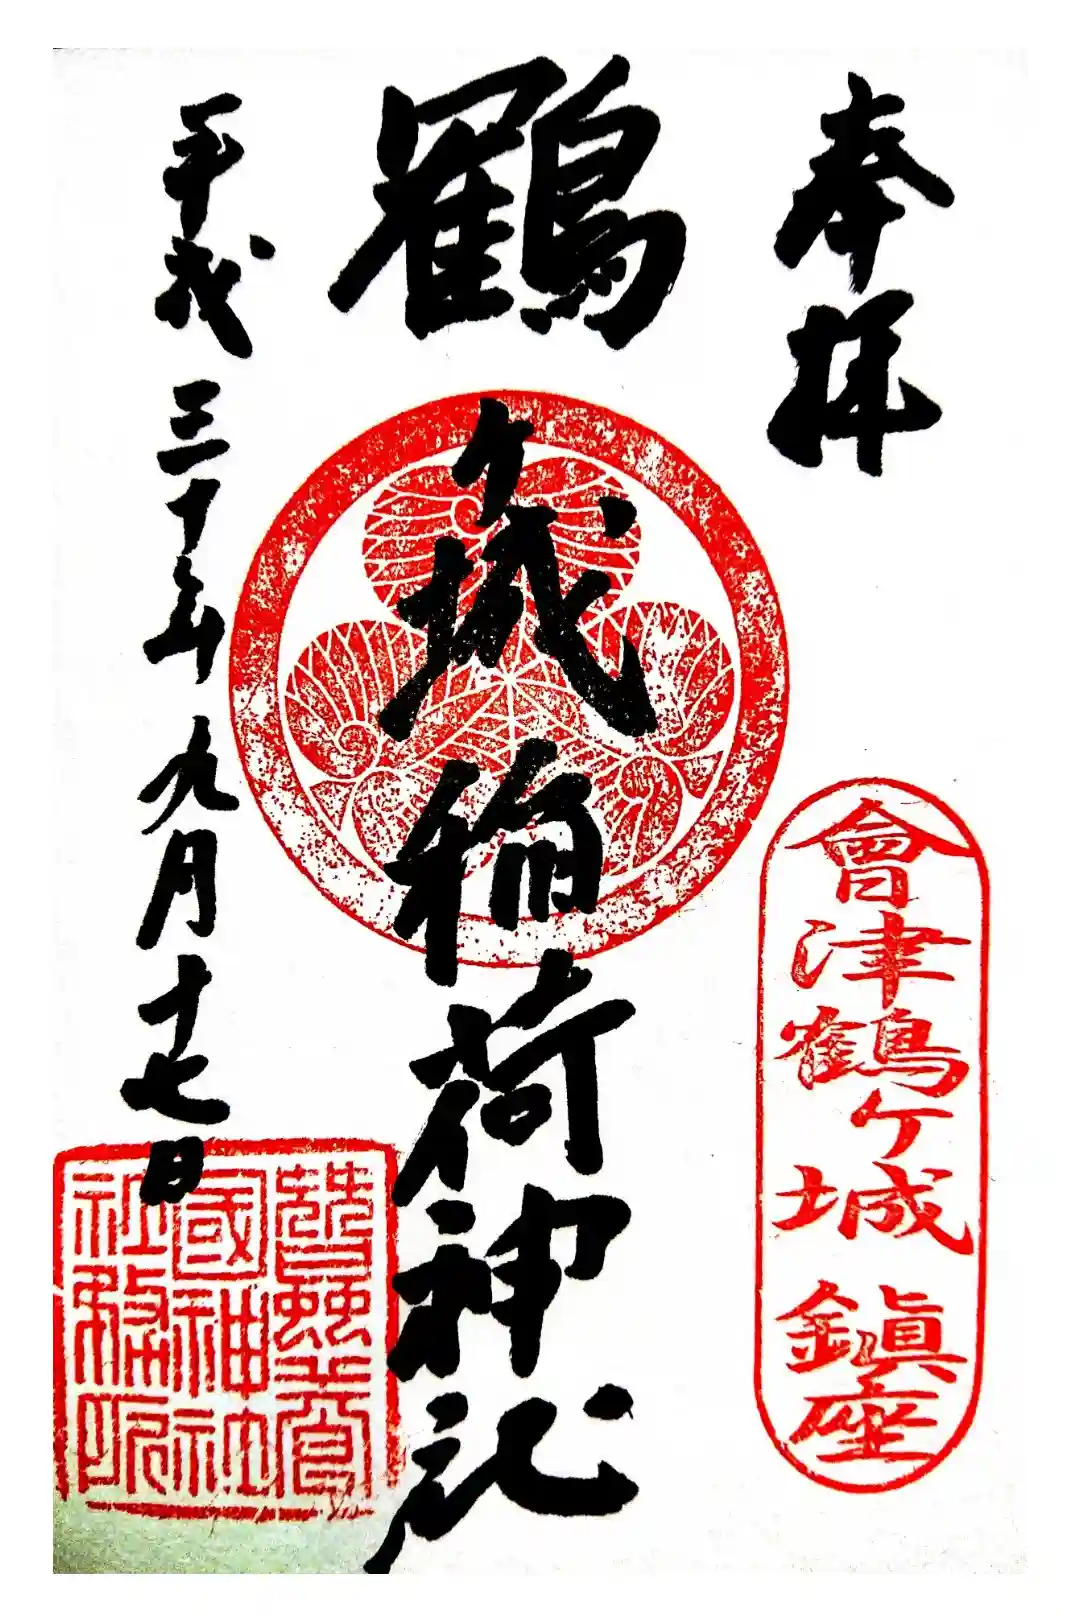 奉拝
會津鶴ケ城鎮座
鶴ケ城稲荷神社
平成三十年九月十七日
蠶養國神社社務所